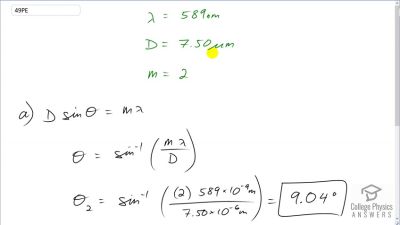 49PE
λ = 589nm
D = 7.50μm
m = 2
a) D sinθ = mλ
θ = sin⁻¹ (mλ / D)
θ₂ = sin⁻¹ ((2) 589×10⁻⁹m / 7.50×10⁻⁶m) = 9.04°
College Physics
ANSWERS